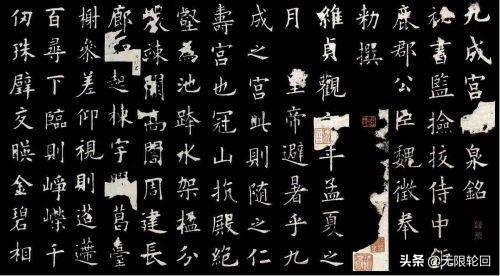 九成宮泉銘
秘書監撿挍侍中
鹿郡公臣魏徵奉
勑撰
維貞觀年孟夏之
月皇帝避暑乎九
成之宮此則隨之仁
壽宮也冠山抗殿絕
壑為池跨水架楹分
巖竦闕高閣周建長
廊起棟宇葛臺
榭參差仰視則迢遰
百尋下臨則崢嶸千
仞珠璧交暎金碧相
头条 @无限轮回